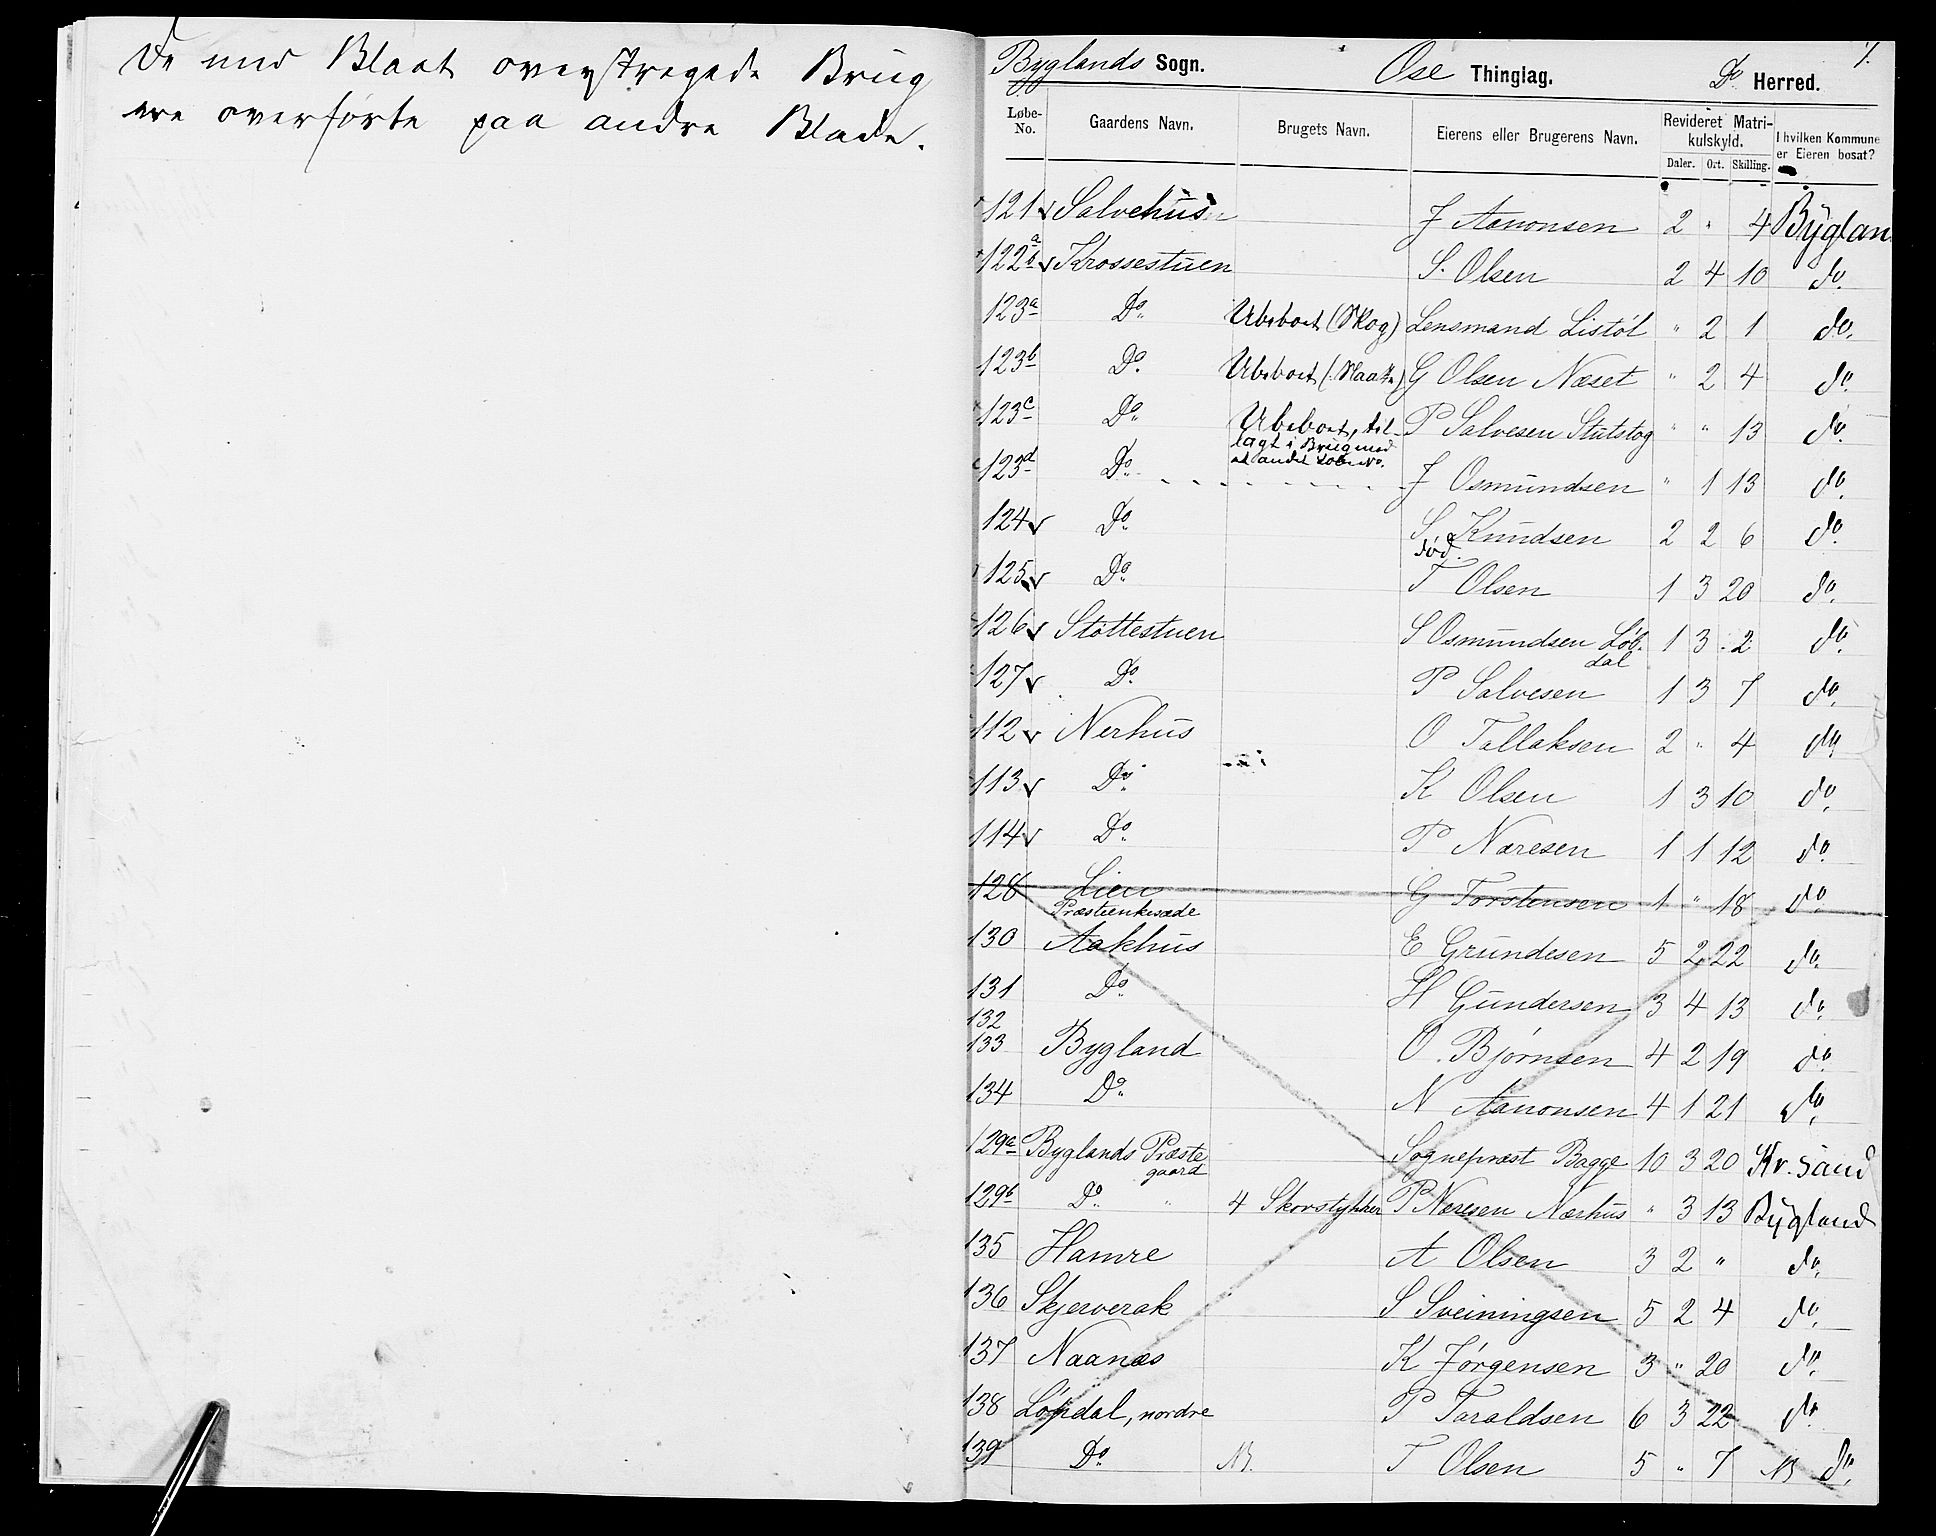 De med Blaat overstregede Brug
ere overførte paa andre Blade.
Byglands Sogn. Ose Thinglag. Do Herred. 1.
Løbe-No. Gaardens Navn. Brugets Navn. Eierens eller Brugerens Navn. Revideret Matrikulskyld. I hvilken Kommune er Eieren bosat?
Daler. Ort. Skilling.
121 Salvehus J Aanonsen 2 " 4 Bygland
122 a b Krossestuen S. Olsen 2 4 10 do.
123a Do. Ubeboet (Skog) Lensmand Listøl " 2 1 do.
123b Do. Ubeboet (Slaatte) G Olsen Næset " 2 4 do.
123c Do. Ubeboet, til- P Salvesen Stutstog " " 13 do.
lagt i Brug med
et andet Løbe No.
123d Do. J Osmundsen " 1 13 do.
124 Do. S Knudsen 2 2 6 do.
død.
125 Do. T Olsen 1 3 20 do.
126 Støttestuen S Osmundsen Løb- 1 3 2 do.
dal
127 Do. P Salvesen 1 3 7 do.
112 Nerhus O Tallaksen 2 " 4 do.
113 Do. K Olsen 1 3 10 do.
114 Do. P Næresen 1 1 12 do.
128 Lien G Torstensen 1 " 18 do.
Præsteenkesæde
130 Aakhus E Grundesen 5 2 22 do.
131 Do. H Gundersen 3 4 13 do.
132
133 Bygland O. Bjørnsen 4 2 19 do.
134 Do. N Aanonsen 4 1 21 do.
129a Byglands Præste Sognepræst Bagge 10 3 20 Kr. sand
gaard
129b Do. " 4 Skovstykker P Næresen Nærhus " 3 13 Bygland
135 Hamre A Olsen 3 2 " do.
136 Skjerverak S Sveiningsen 5 2 4 do.
137 Naanæs K Jørgensen 3 " 20 do.
138 Løpdal, nordre P Taraldsen 6 3 22 do.
139 Do. N. T Olsen 5 " 7 N do.